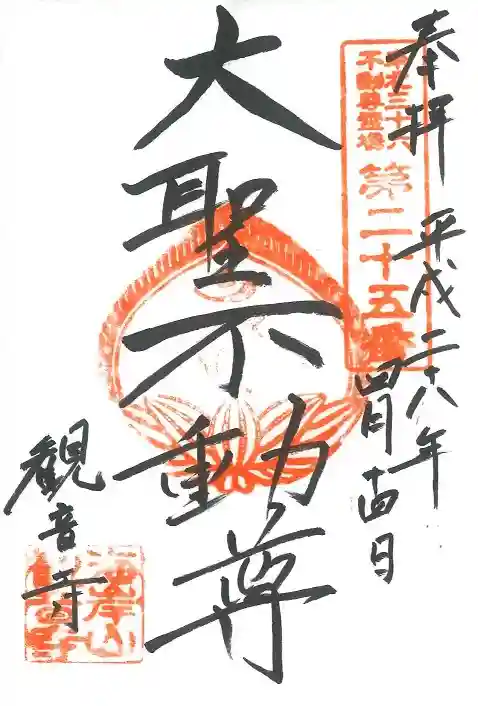 奉拝
平成二十八年
四月十四日
三十六
不動尊霊場
第二十五番
大聖不動尊
観音寺